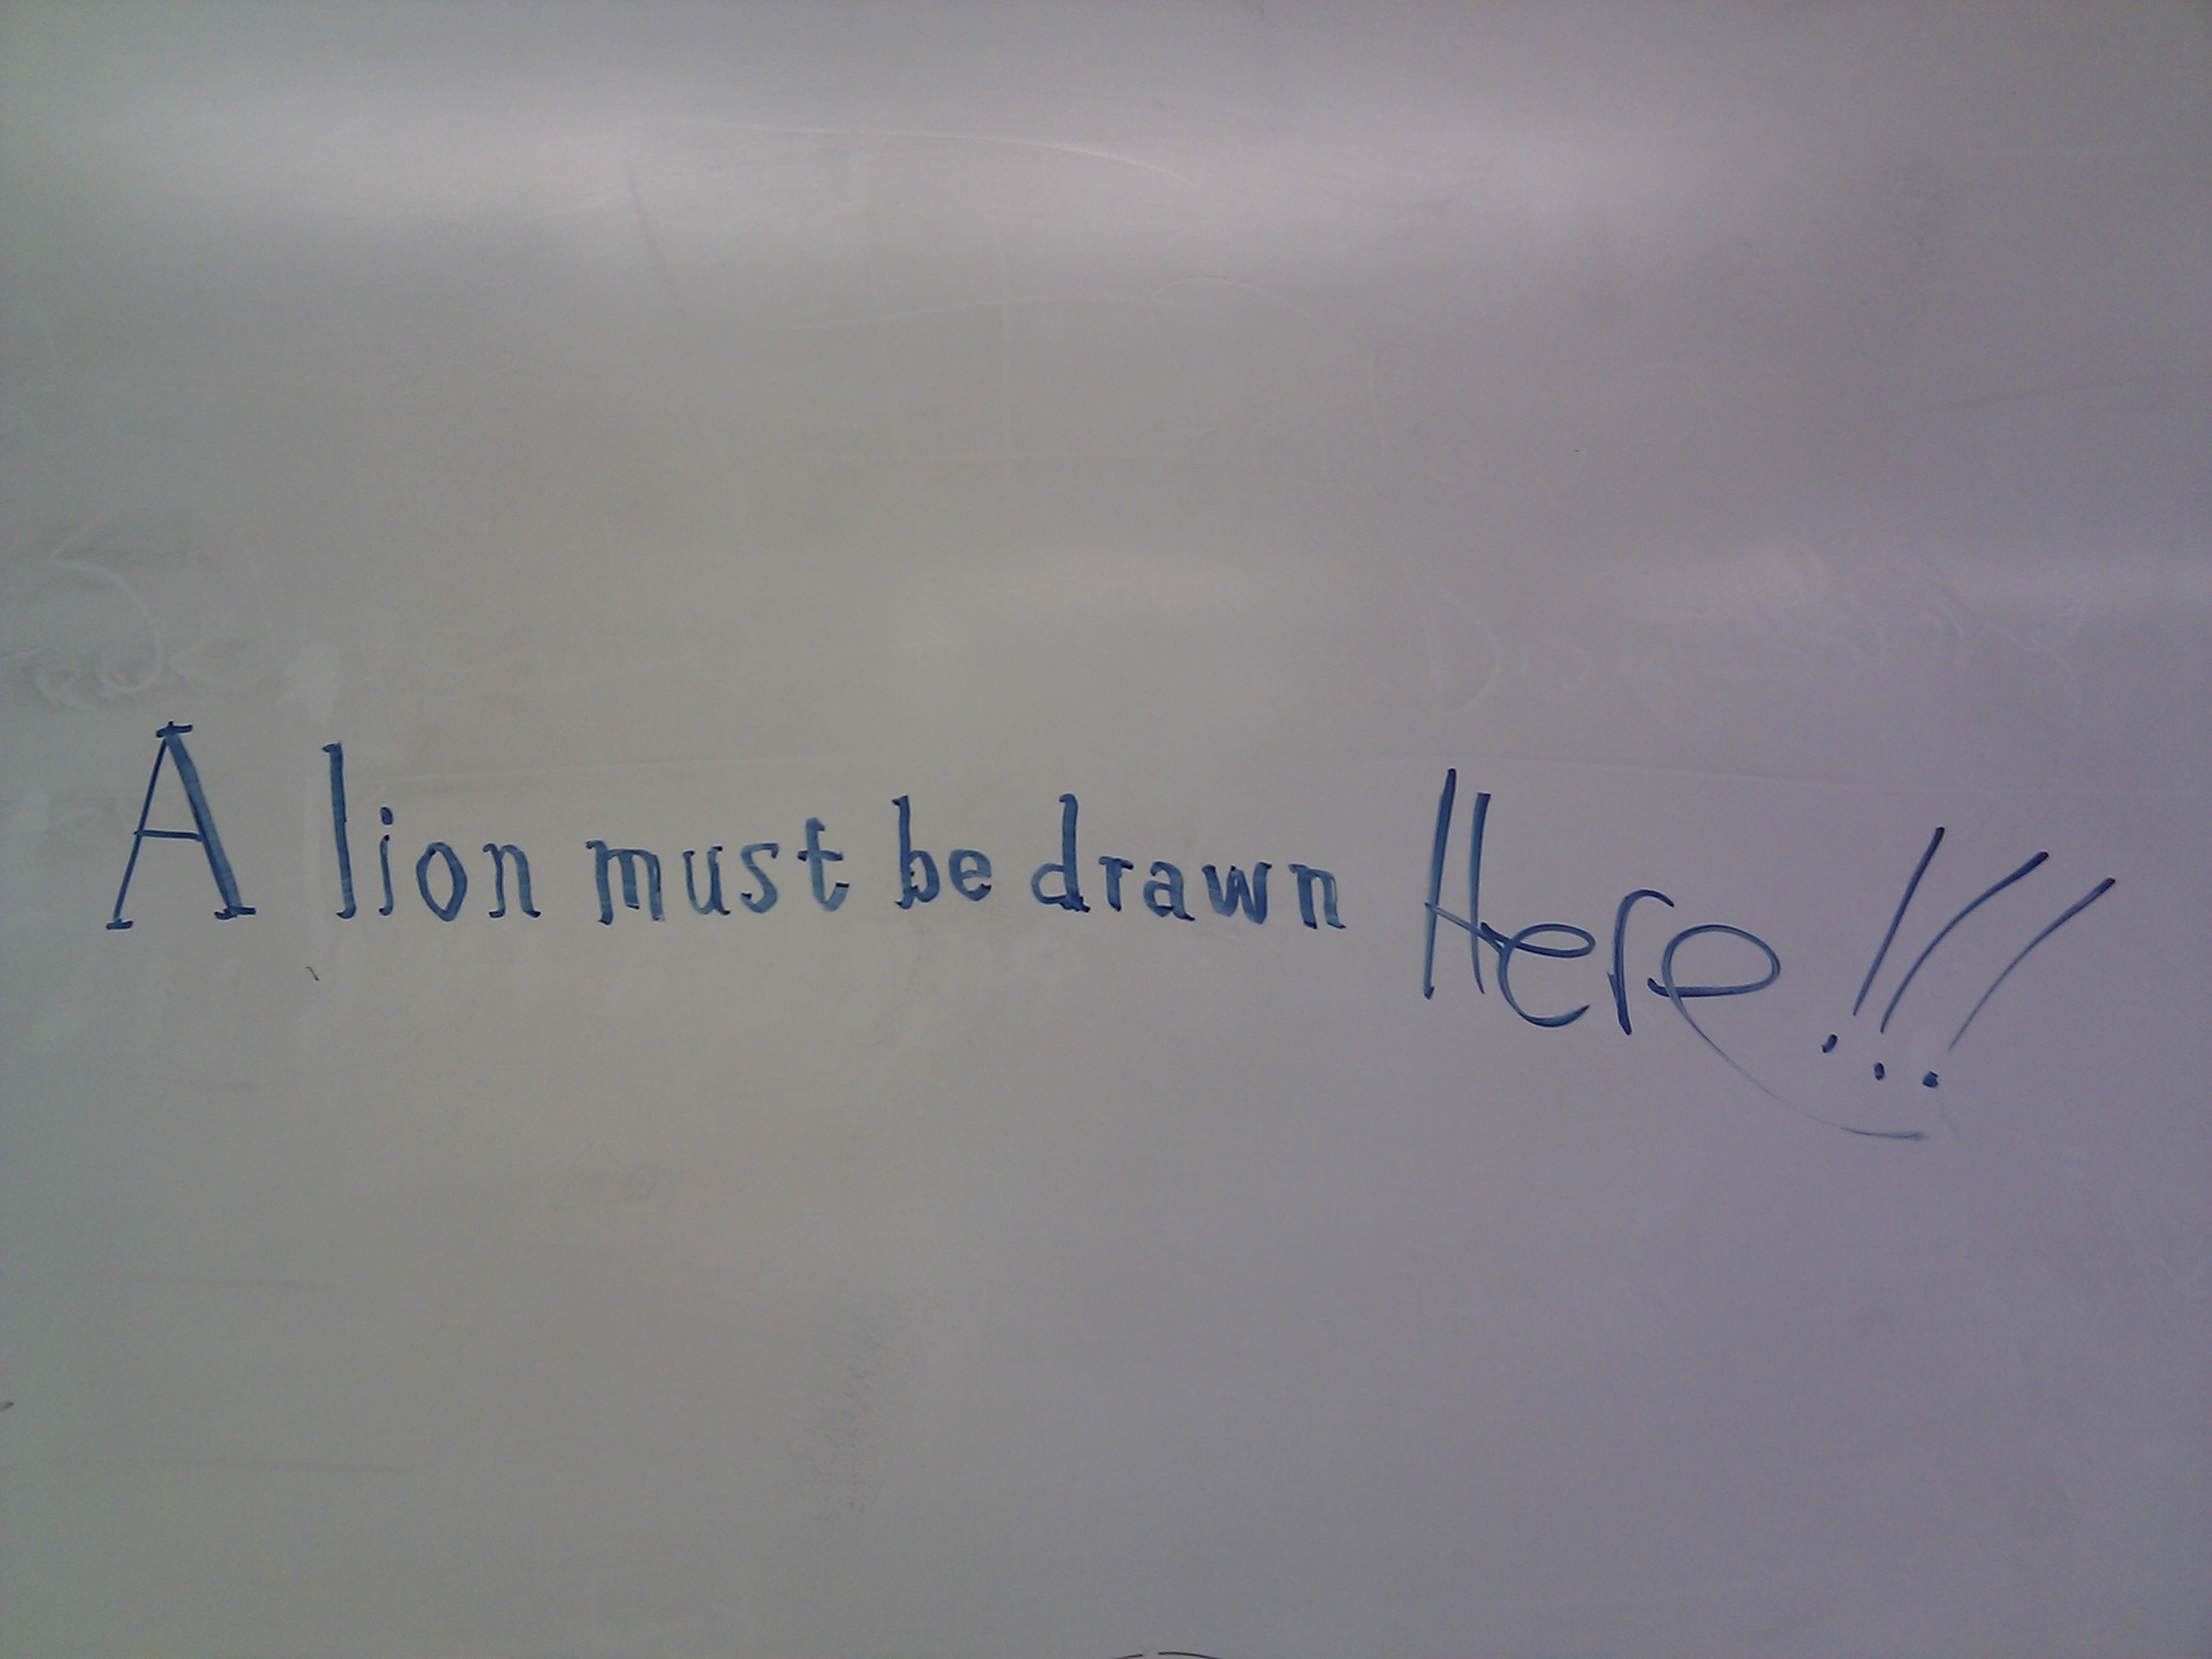 A lion must be drawn Here!!!